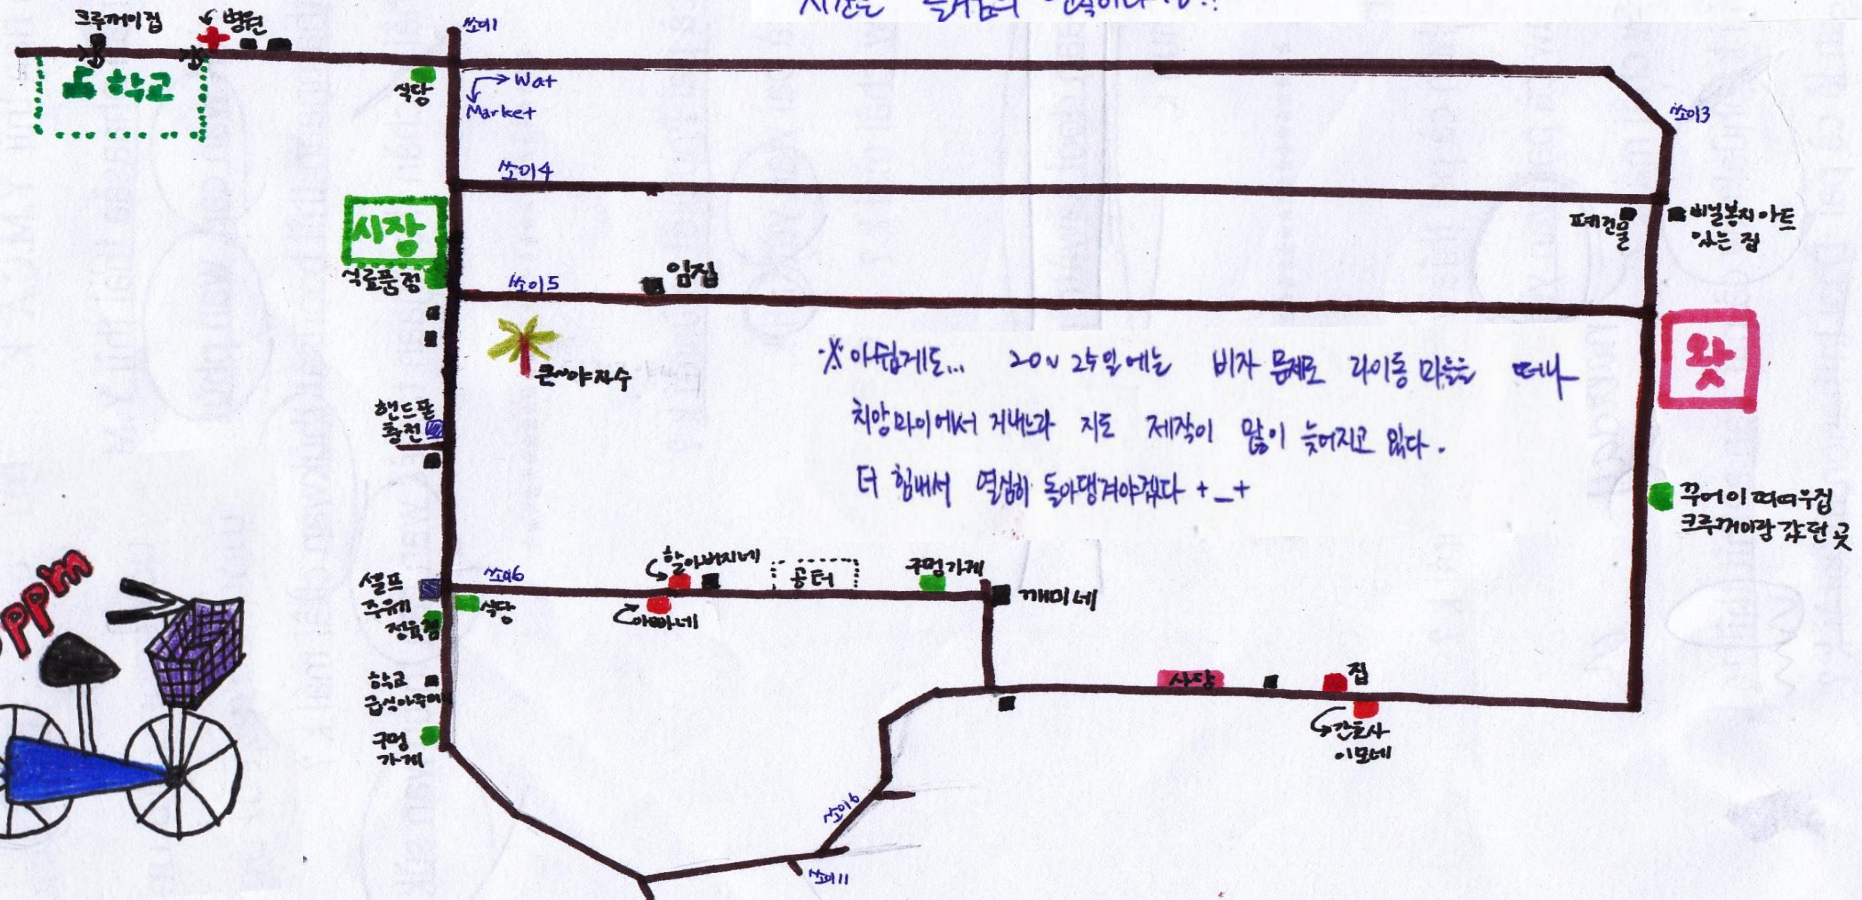 크루꺼이집
병원
학교
쏘이1
식당
Wat
Market
쏘이3
쏘이4
시장
식료품점
폐건물
비닐봉지 아트
있는 집
쏘이5
임집
큰 야자수
왓
※ 아쉽게도... 25일에는 비자 문제로 라이동 마을을 떠나
치앙마이에서 지내느라 지도 제작이 많이 늦어지고 있다.
더 힘내서 열심히 돌아댕겨야겠다 +_+
핸드폰
충전
꾸어이띠띠우집
크루꺼이랑 갔던 곳
ppm
셀프
주유
정육점
쏘이6
식당
할아버지네
아빠네
공터
구멍가게
깨미네
학교
급식아주머니
구멍
가게
사당
집
간호사
이모네
쏘이6
쏘이11